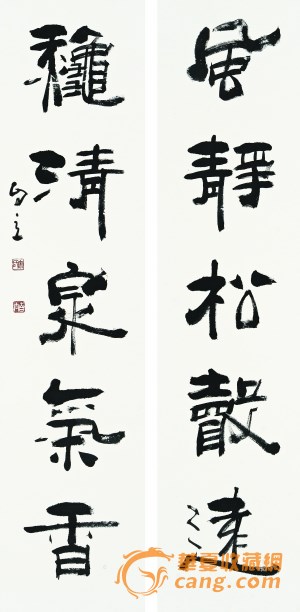 風靜松聲遠
龝清泉氣香
華夏收藏網
cang.com